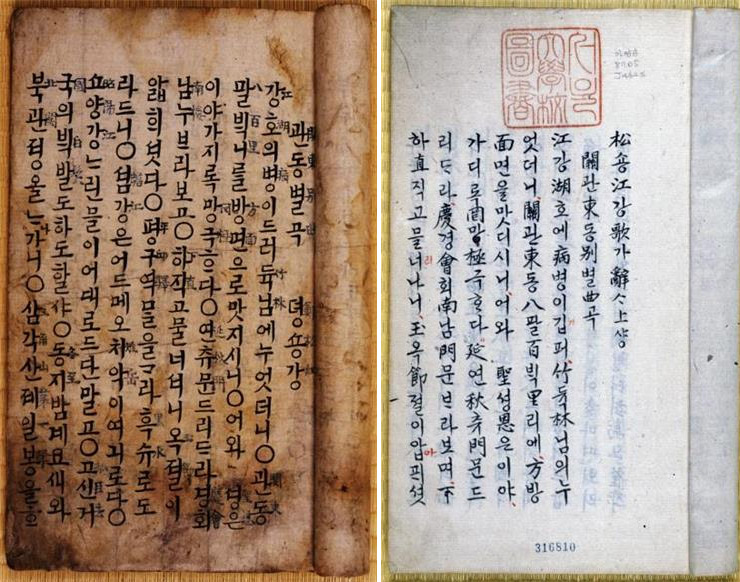 관동별곡 뎡숑강
강호의병이드러듁님에누엇더니○관동
팔빅니를방면으로맛지시니○어와셩은
이야가지록망극ᄒᆞ다○연츄문드리드라경회
남누ᄇᆞ라보고○하직고믈너니옥졀이
알픠셧다○평구역믈을ᄀᆞ라흑슈로도
라드니○셤강은어드메오치악이여긔로다○
쇼양강ᄂᆞ린믈이어대로드단말고○고신거
국의빅발도하도할샤○동지밤계요새와
북관뎡올ᄂᆞ가니○삼각산졔일봉을ᄒᆞ
松숑江강歌가辭ᄉᆞ上샹
關관東동別별曲곡
江강湖호에病병이깁퍼竹듁林님의누
엇더니關관東동八팔百빅里리에方방
面면을맛디시니어와聖셩恩은이야
가디록罔망極극ᄒᆞ다延연秋츄門문드
리ᄃᆞ라慶경會회南남門문ᄇᆞ라보며下
하直직고믈너나니玉옥節졀이압픠셧
316810